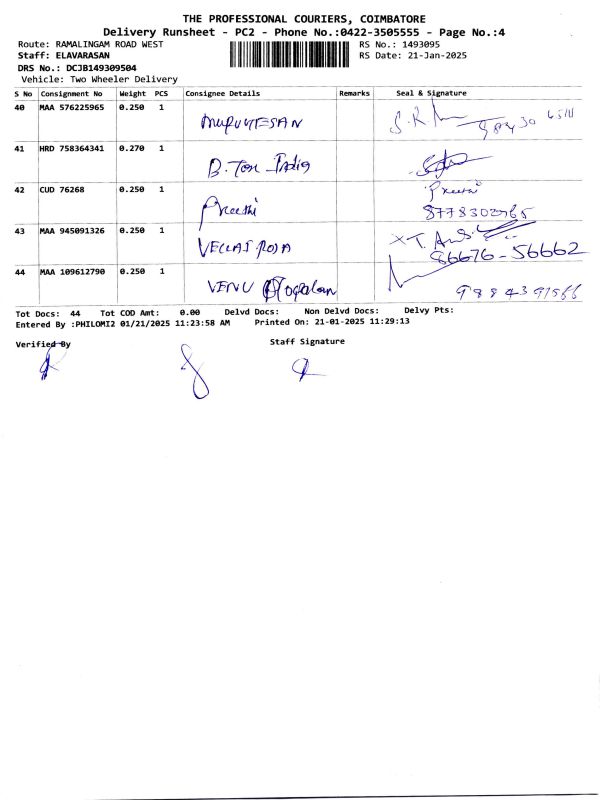 THE PROFESSIONAL COURIERS, COIMBATORE
Delivery Runsheet - PC2 - Phone No.:0422-3505555 - Page No.:4
Route: RAMALINGAM ROAD WEST RS No.: 1493095
Staff: ELAVARASAN RS Date: 21-Jan-2025
DRS No.: DCJB149309504
Vehicle: Two Wheeler Delivery
S No Consignment No Weight PCS Consignee Details Remarks Seal & Signature
40 MAA 576225965 0.250 1
MURUGESAN S.R
41 HRD 758364341 0.270 1
B. Tex India
42 CUD 76268 0.250 1 Preethi
Preethi 8778302965
43 MAA 945091326 0.250 1
VELLAI ROJA 86676-56662
44 MAA 109612790 0.250 1
VENU 9884391566
Tot Docs: 44 Tot COD Amt: 0.00 Delvd Docs: Non Delvd Docs: Delvy Pts:
Entered By :PHILOMI2 01/21/2025 11:23:58 AM Printed On: 21-01-2025 11:29:13
Verified By Staff Signature